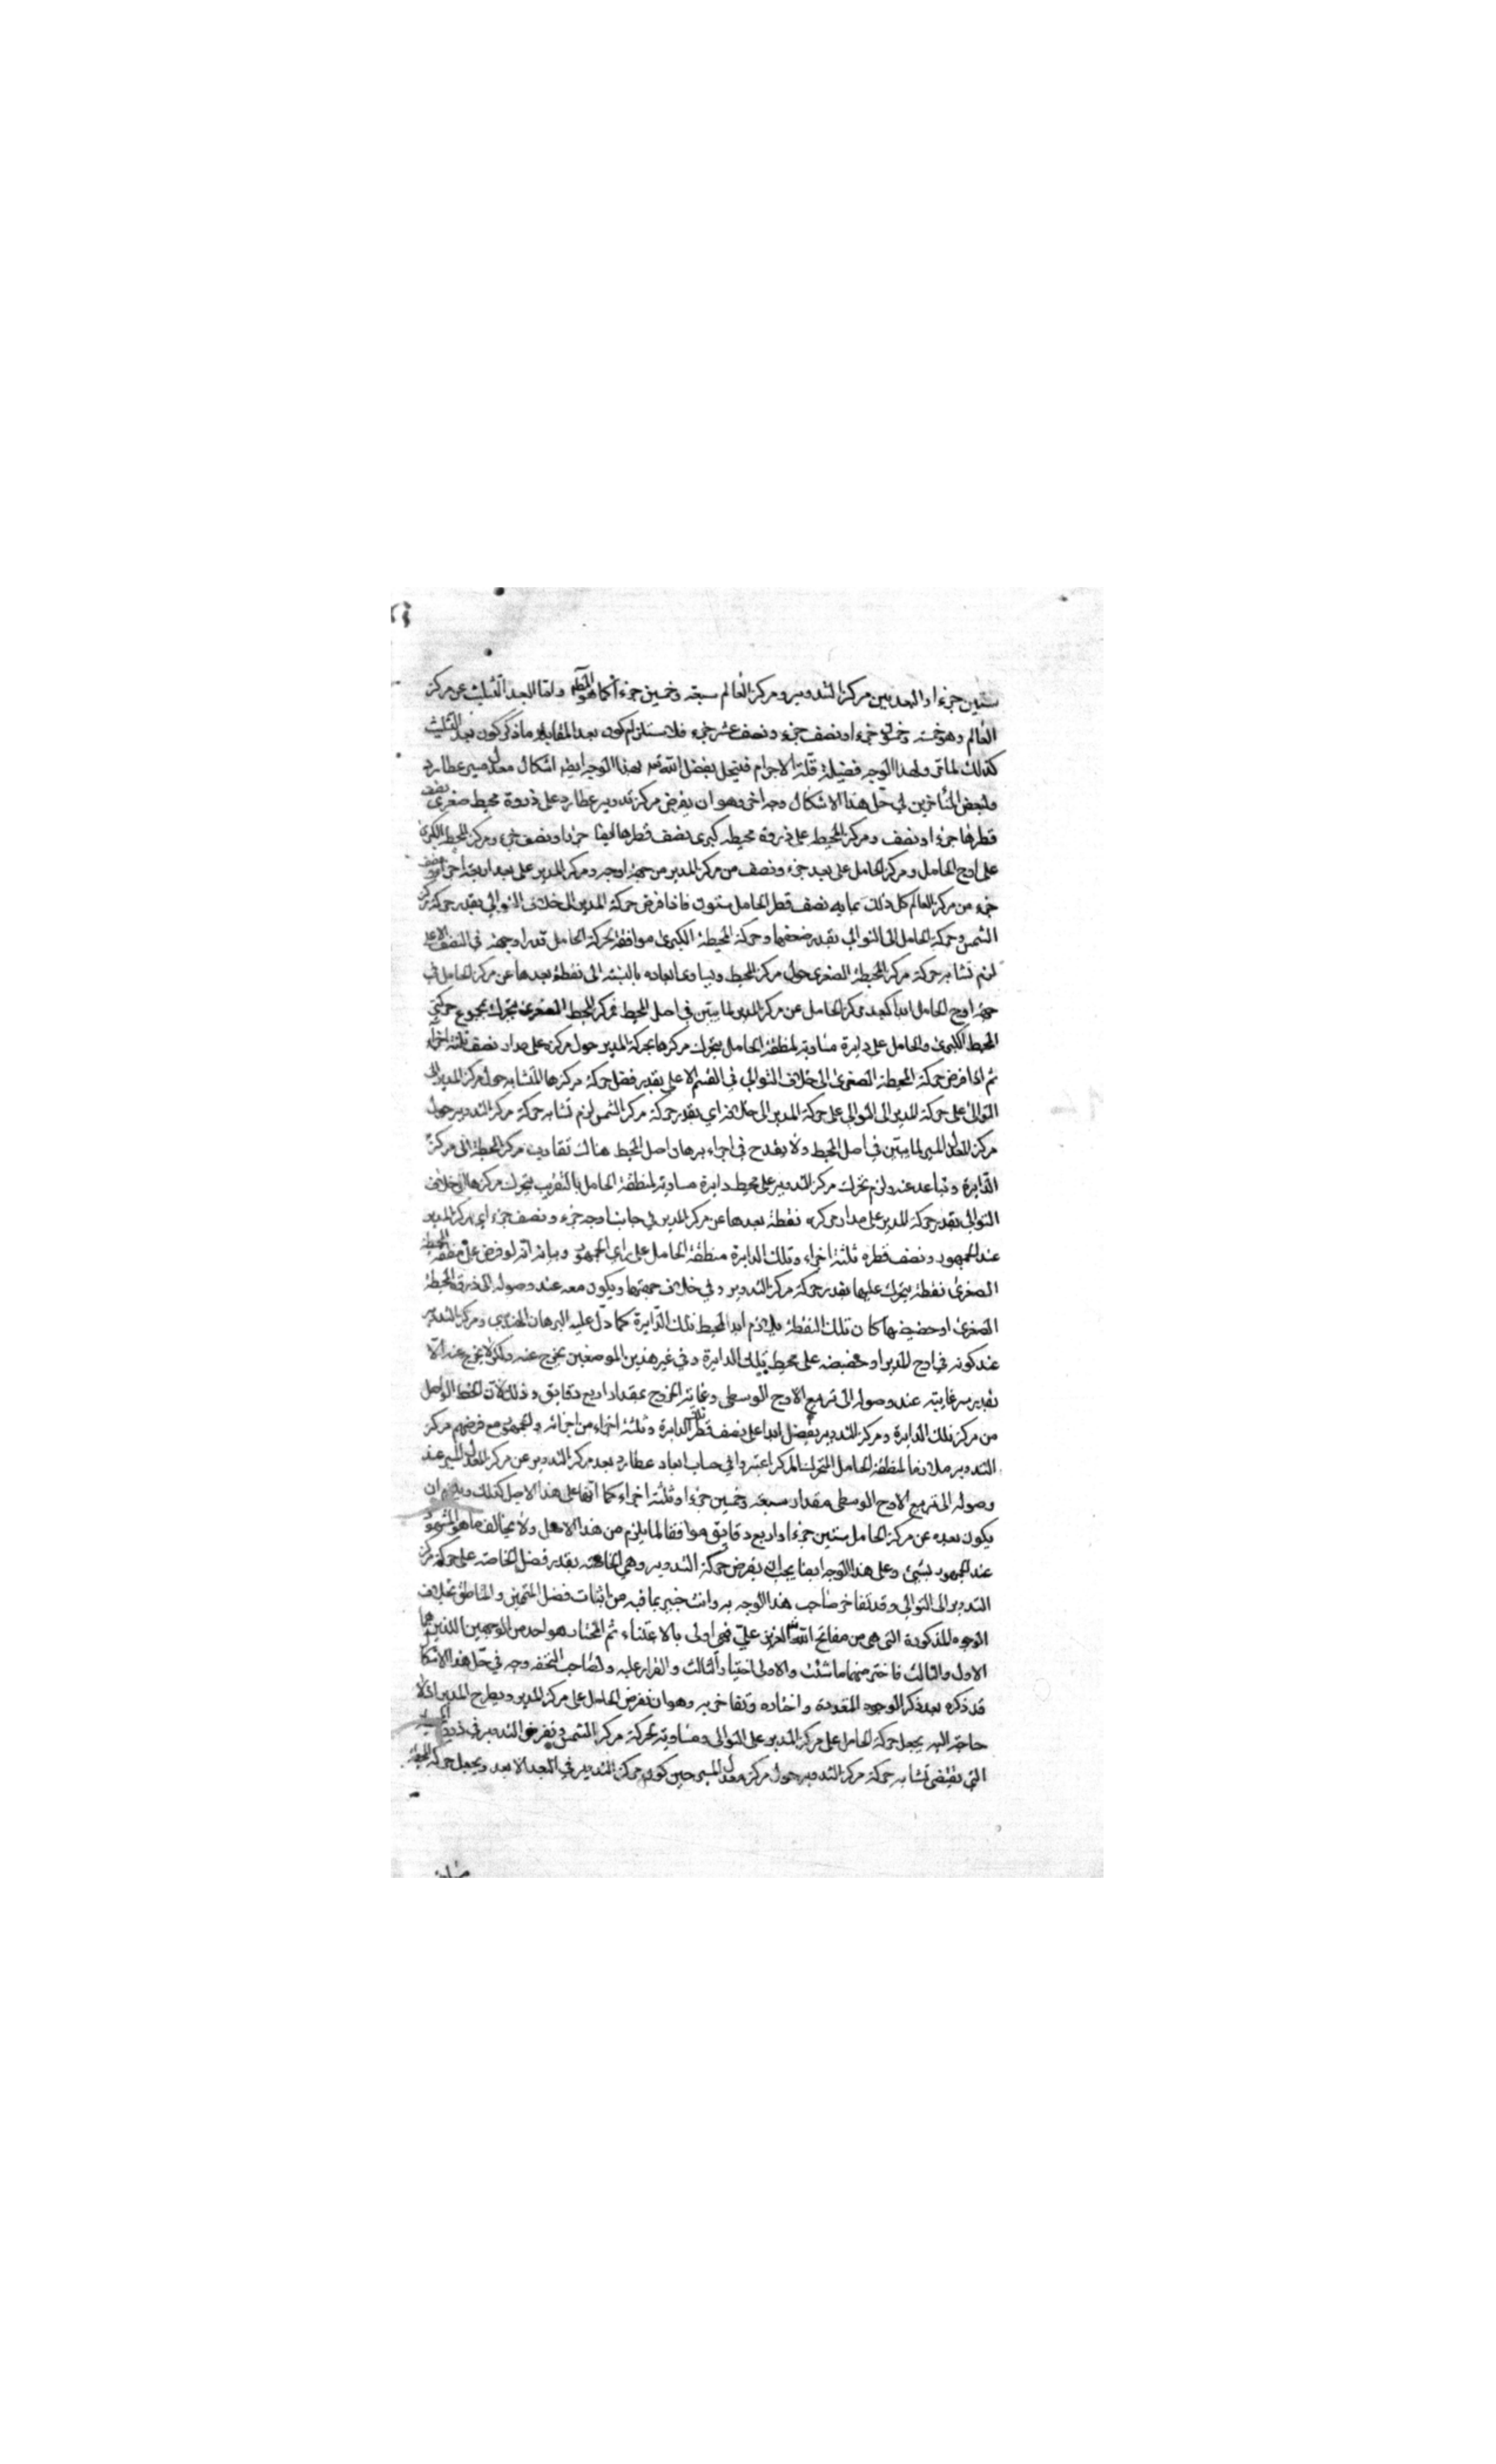 ستين جزءا والبعد بين مركز التدوير ومركز العالم سبعة وخمسين جزءا كما هو واما البعد الثالث عن مركز
العالم وهو خمسة وخمسون جزءا ونصف جزء ونصف عشر جزء فلا يستلزم كون بعد المقابلة ما ذكر كون بعد التثليث
كذلك لما مر ولهذا الوجه فضيلة قلة الاجرام فينحل بفضل الله بهذا الوجه ايضا اشكال معدل مسير عطارد
ولبعض المتأخرين في حل هذا الاشكال وجه اخر وهو ان يفرض مركز تدوير عطارد على ذروة محيطه صغرى نصف
قطرها جزءا ونصف ومركز المحيطة على ذروة محيطه كبرى نصف قطرها ايضا جزءا ونصف جزء ومركز المحيطة الكبرى
على اوج الحامل ومركز الحامل على بعد جزء ونصف من مركز المدير من جهة اوجه ومركز المدير على بعد اربعة اجزاء ونصف
جزء من مركز العالم كل ذلك بما به نصف قطر الحامل ستون فاذا فرض حركة المدير الى خلاف التوالي بقدر حركة مركز
الشمس وحركة الحامل الى التوالي بقدر ضعفها وحركة المحيطة الكبرى موافقة لحركة الحامل قدرا وجهة في النصف الاعلى
لزم تشابه حركة مركز المحيطة الصغرى حول مركز المحيط وتساوي ابعاده بالنسبة الى نقطة بعدها عن مركز الحامل في
جهة اوج الحامل ابدا كبعد مركز الحامل عن مركز المدير لما تبين في اصل المحيط فمركز المحيطة الصغرى يتحرك بمجموع حركتي
المحيطة الكبرى والحامل على دايرة مساوية لمنطقة الحامل يتحرك مركزها بحركة المدير حول مركزه على مدار نصف ثلثة اجزاء
ثم اذا فرض حركة المحيطة الصغرى الى خلاف التوالي في القسم الاعلى بقدر فضل حركة مركزها المتشابه حول مركز المدير الى
التوالي على حركة المدير الى التوالي على حركة المدير الى خلافه اي بقدر حركة مركز الشمس لزم تشابه حركة مركز التدوير حول
مركز المعدل المسير لما تبين في اصل المحيط ولا يقدح في اجراء برهان اصل المحيط هناك تقارب مركز المحيطة الى مركز
الدايرة وتباعده عنه ولزم تحرك مركز التدوير على محيط دايرة مساوية لمنطقة الحامل بالتقريب يتحرك مركزها الى خلاف
التوالي بقدر حركة المدير على مدار مركزه نقطة بعدها عن مركز المدير في جانب اوجه جزء ونصف جزء اي مركز المدير
عند الجمهور ونصف قطره ثلثة اجزاء وتلك الدايرة منطقة الحامل على راي الجمهور وبيانه انه لو فرض على منطقة المحيطة
الصغرى نقطة يتحرك عليها بقدر حركة مركز التدوير وفي خلاف جهتها ويكون معه عند وصوله الى ذروة المحيطة
الصغرى او حضيضها كان تلك النقطة يلازم ابدا لمحيط تلك الدايرة كما دل عليه البرهان الهندسي ومركز التدوير
عند كونه في اوج المدير او حضيضه على محيط تلك الدايرة وفي غير هذين الموضعين يخرج عنه ولكن لا يخرج عنه الا
بقدر يسير غايته عند وصوله الى تربيع الاوج الوسطى وغاية الخروج بمقدار اربع دقايق وذلك لان الخط الواصل
من مركز تلك الدايرة ومركز التدوير يفضل ابدا على نصف قطر الدايرة وثلثة اجزاء من اجزائه والجمهور مع فرضهم مركز
التدوير ملازما لمنطقة الحامل المتحرك المركز اعتبروا في حساب ابعاد عطارد بعد مركز التدوير عن مركز المعدل المسير عند
وصوله الى تربيع الاوج الوسطى مقدار سبعة وخمسين جزءا وثلثة اجزاء كما انها على هذا الاصل كذلك ويلزم ان
يكون بعده عن مركز الحامل ستين جزءا واربع دقايق موافقا لما يلزم من هذا الاصل ولا يخالف ما هو المشهور
عند الجمهور بشيء وعلى هذا الوجه ايضا يجب ان يفرض حركة التدوير وهي الخاصة بقدر فضل الخاصة على حركة مركز
التدوير الى التوالي وقد تفاخر صاحب هذا الوجه به وانت خبير بما فيه من اثبات فضل المتممين والمناطق بخلاف
الوجوه المذكورة التي هي من مفاتح الله العزيز علي فهي اولى بالاعتناء ثم المختار هو احد من الوجهين اللذين هما
الاول والثالث فاختر منهما ما شئت والاولى اختيار الثالث والقرار عليه ولصاحب التحفة وجه في حل هذا الاشكال
قد ذكره بعد ذكر الوجوه المتعددة واختاره وتفاخر به وهو ان نفرض الحامل على مركز المدير ويطرح المدير اذ لا
حاجة اليه يجعل حركة الحامل على مركز المدير على التوالي ومساوية لحركة مركز الشمس ونفرض التدوير في ذروة المحيطة
التي يقتضي تشابه حركة مركز التدوير حول مركز معدل المسير حين كون مركز التدوير في البعد الابعد ويجعل حركة المحيطة